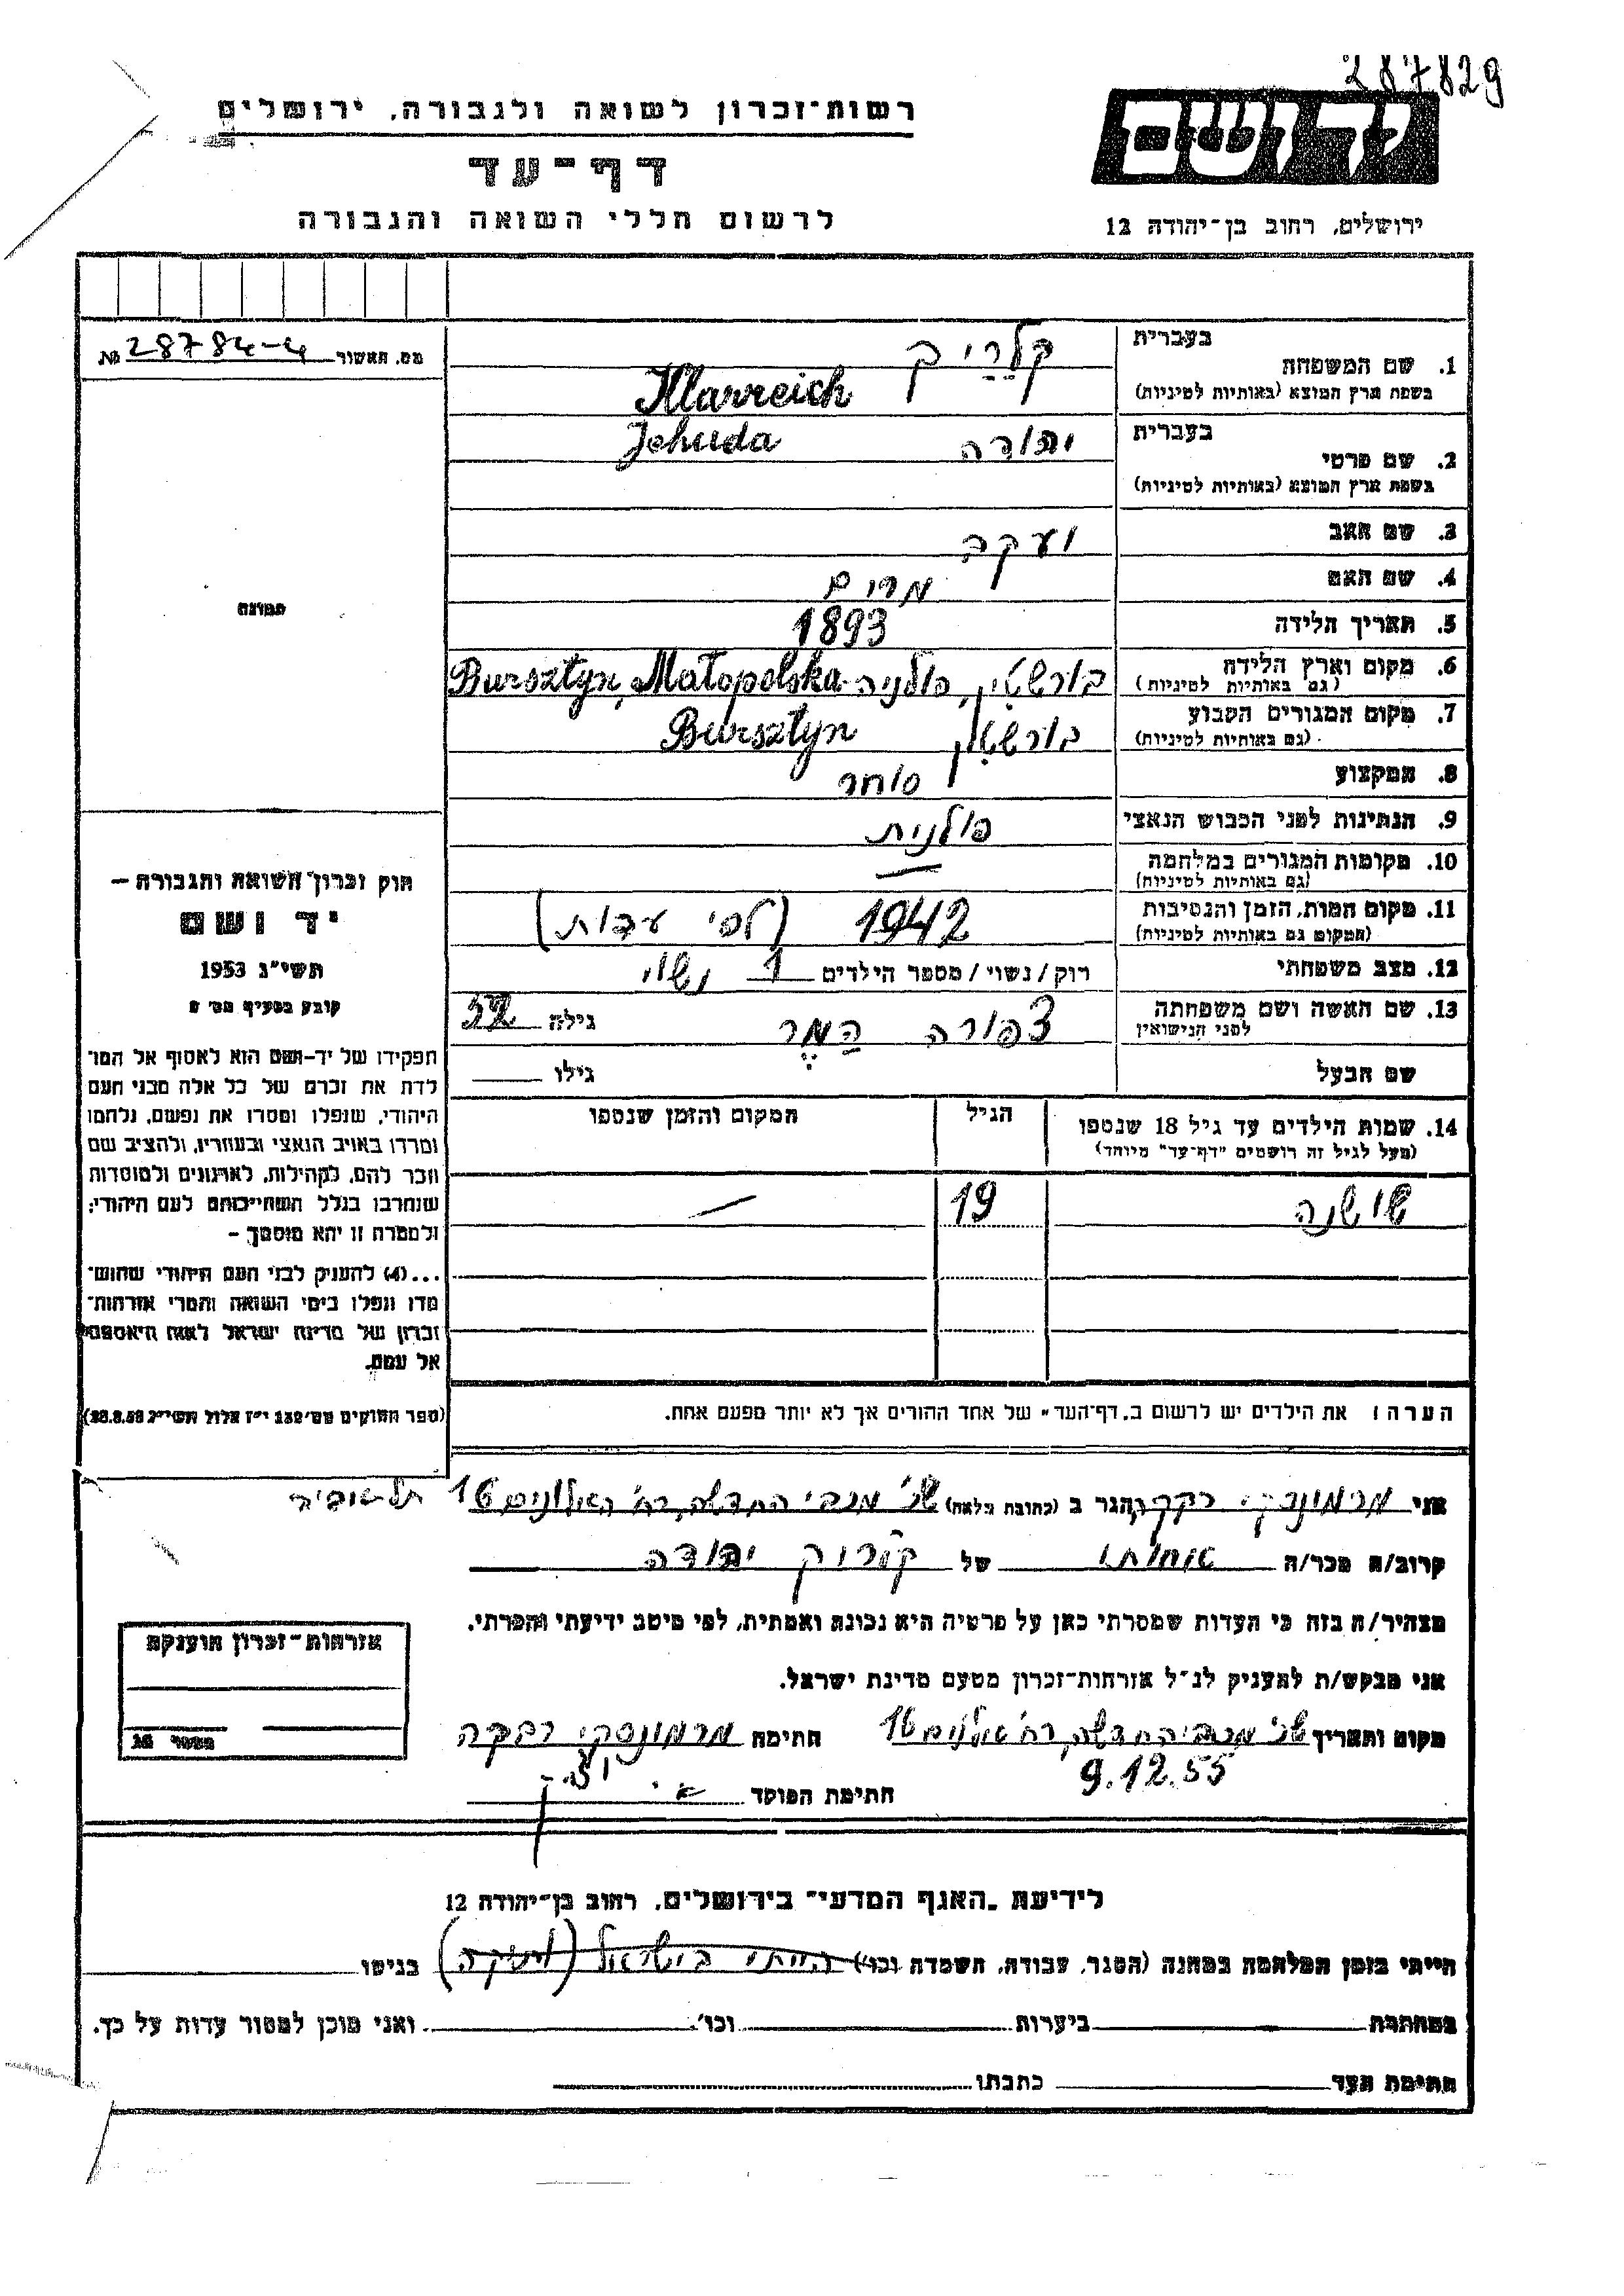 287829
רשות-זכרון לשואה ולגבורה, ירושלים
יד ושם
דף-עד
לרשום חללי השואה והגבורה
ירושלים, רחוב בן-יהודה 12
מס. האשור 28784-4 №
בעברית קלרייך
1. שם המשפחה
בשפת ארץ המוצא (באותיות לטיניות) Klarreich
בעברית יהודה Jehuda
2. שם פרטי
בשפת ארץ המוצא (באותיות לטיניות)
3. שם האב יעקב
4. שם האם מרים
5. תאריך הלידה 1893
6. מקום וארץ הלידה בורשטין, פולניה Bursztyn, Małopolska
(גם באותיות לטיניות)
7. מקום המגורים הקבוע בורשטין Bursztyn
(גם באותיות לטיניות)
8. המקצוע סוחר
9. הנתינות לפני הכבוש הנאצי פולנית
10. מקומות המגורים במלחמה —
(גם באותיות לטיניות)
11. מקום המות, הזמן והנסיבות 1942 (לפי עדות)
(המקום גם באותיות לטיניות)
12. מצב משפחתי רוק/נשוי/מספר הילדים 1 נשוי
13. שם האשה ושם משפחתה צפורה המר גילה 52
לפני הנישואין
שם הבעל גילו
14. שמות הילדים עד גיל 18 שנספו הגיל המקום והזמן שנספו
(מעל לגיל זה רושמים "דף-עד" מיוחד)
שושנה 19 —
תמונה
חוק זכרון השואה והגבורה –
יד ושם
תשי"ג 1953
קובע בסעיף מס'
תפקידו של יד-ושם הוא לאסוף אל המו־
לדת את זכרם של כל אלה מבני העם
היהודי, שנפלו ומסרו את נפשם, נלחמו
ומרדו באויב הנאצי ובעוזריו, ולהציב שם
וזכר להם, לקהילות, לארגונים ולמוסדות
שנחרבו בגלל השתייכותם לעם היהודי;
ולמטרה זו יהא מוסמך –
...(4) להעניק לבני העם היהודי שהוש־
מדו ונפלו בימי השואה והמרי אזרחות־
זכרון של מדינת ישראל לאות היאספם
אל עמם.
(ספר החוקים מס' 132 י"ז אלול תשי"ג 28.8.53)
הערה: את הילדים יש לרשום ב"דף-העד" של אחד ההורים אך לא יותר מפעם אחת.
אני רבקה הגר ב (כתובת מלאה) האלונים 16 תל-אביב
קרוב/ה מכר/ה אחותו של קלריך יהודה
מצהיר/ה בזה כי העדות שמסרתי כאן על פרטיה היא נכונה ואמתית, לפי מיטב ידיעתי והכרתי.
אני מבקש/ת להעניק לנ"ל אזרחות-זכרון מטעם מדינת ישראל.
מקום ותאריך אלונים 16 חתימה רבקה
9.12.55
חתימת הפוקד
אזרחות-זכרון הוענקה
מספר
לידיעת "האגף המדעי" בירושלים, רחוב בן-יהודה 12
הייתי בזמן המלחמה במחנה (הסגר, עבודה, השמדה וכו') הייתי בישראל בגיטו
במחתרת ביערות וכו' ואני מוכן למסור עדות על כך.
חתימת העד כתבתו